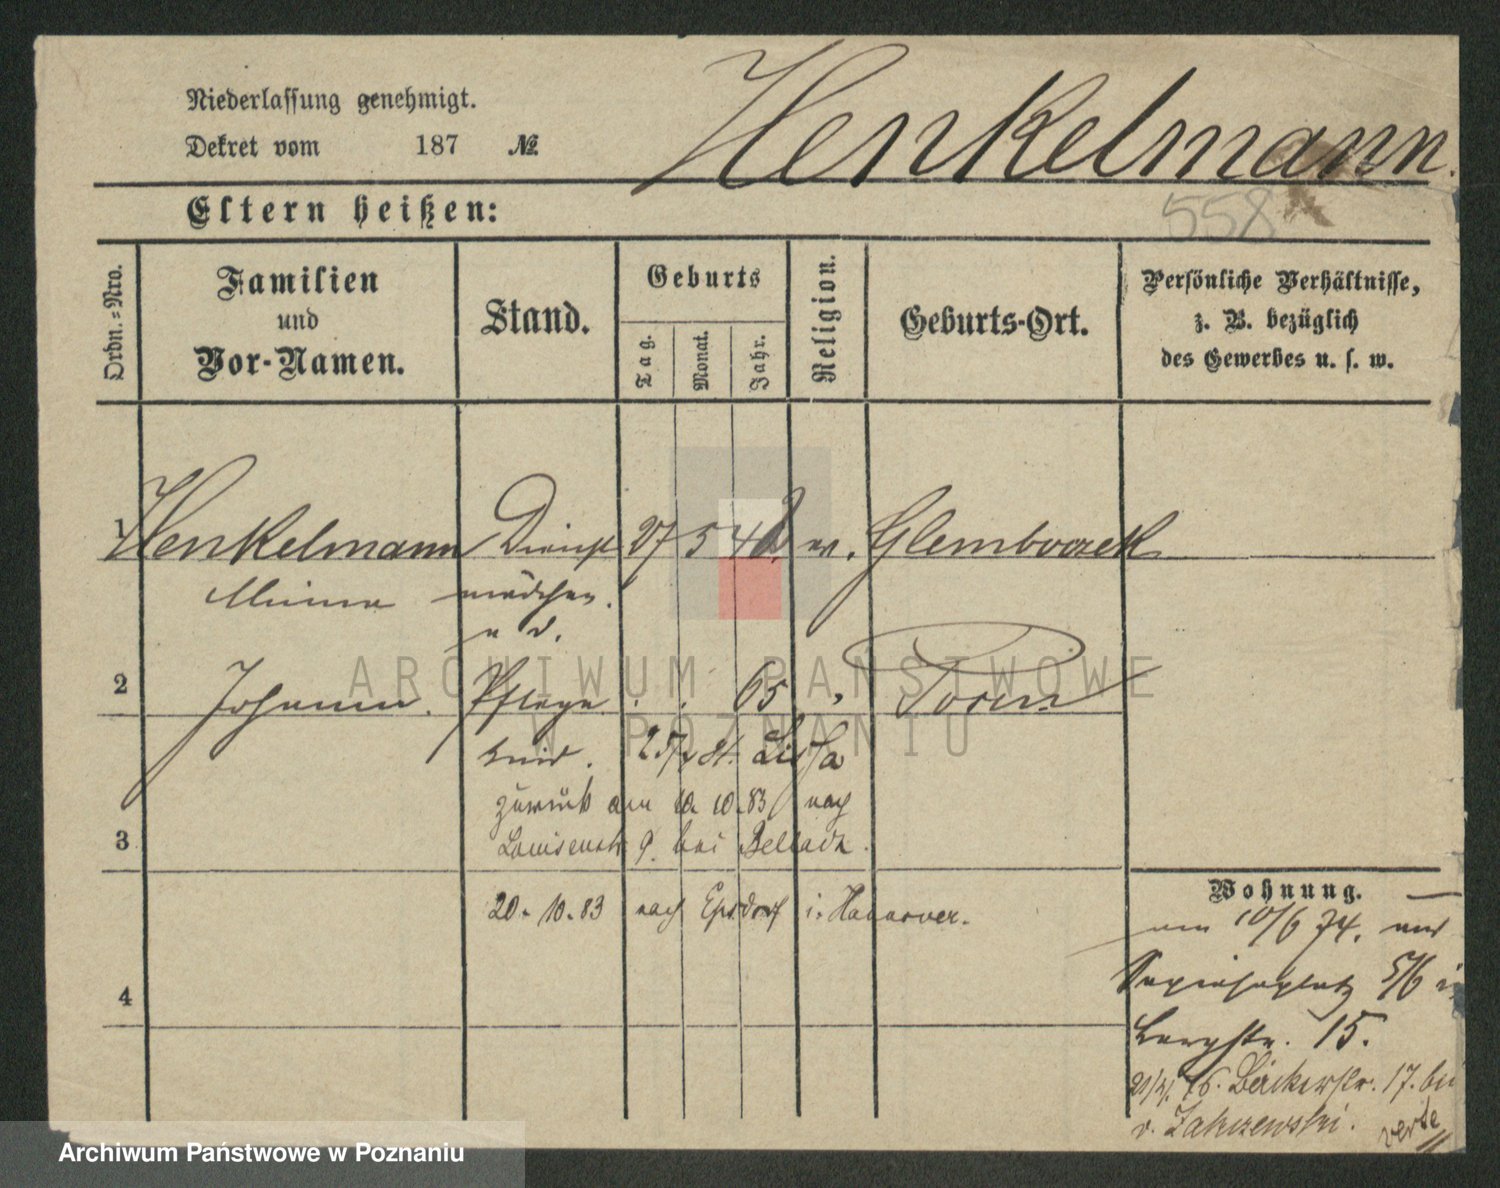 Henkelmann.
Niederlassung genehmigt.
Dekret vom 187 №
558
Eltern heißen:
Ordn.=Nro.
Familien
und
Vor-Namen.
Stand.
Geburts
Tag.
Monat.
Jahr.
Religion.
Geburts-Ort.
Persönliche Verhältnisse,
z. B. bezüglich
des Gewerbes u. s. w.
1 Henkelmann Dienst 27 5 48 ev.
Minna mädchen.
2 Johanna. Pflege . . 65 " Posen
kind. Lissa
zurück am 10. 10. 83 nach
3 Louisenstr 9. bei
20. 10. 83 nach i. Hannover.
4
Wohnung.
am 10/6 74. aus
Sapiehaplatz 5/6 in
Bergstr. 15.
76. Bäckerstr. 17. bei
v. Zakrzewski. verte
ARCHIWUM PAŃSTWOWE
W POZNANIU
Archiwum Państwowe w Poznaniu